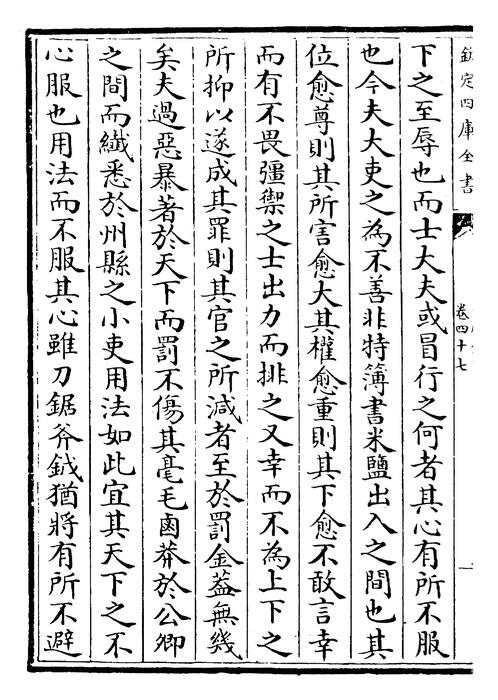 欽定四庫全書
卷四十七
下之至辱也而士大夫或冒行之何者其心有所不服
也今夫大吏之為不善非特簿書米鹽出入之間也其
位愈尊則其所害愈大其權愈重則其下愈不敢言幸
而有不畏彊禦之士出力而排之又幸而不為上下之
所抑以遂成其罪則其官之所減者至於罰金葢無幾
矣夫過惡暴著於天下而罰不傷其毫毛鹵莽於公卿
之間而纖悉於州縣之小吏用法如此宜其天下之不
心服也用法而不服其心雖刀鋸斧鉞猶將有所不避